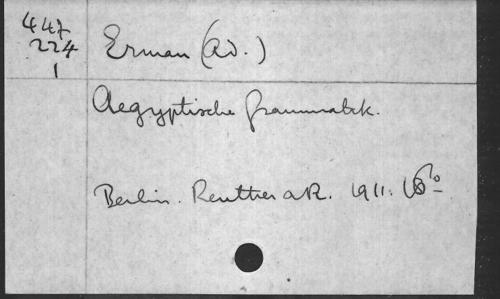 447
224
1
Erman (Ad.)
Aegyptische Grammatik.
Berlin. Reuther a R. 1911. 8º